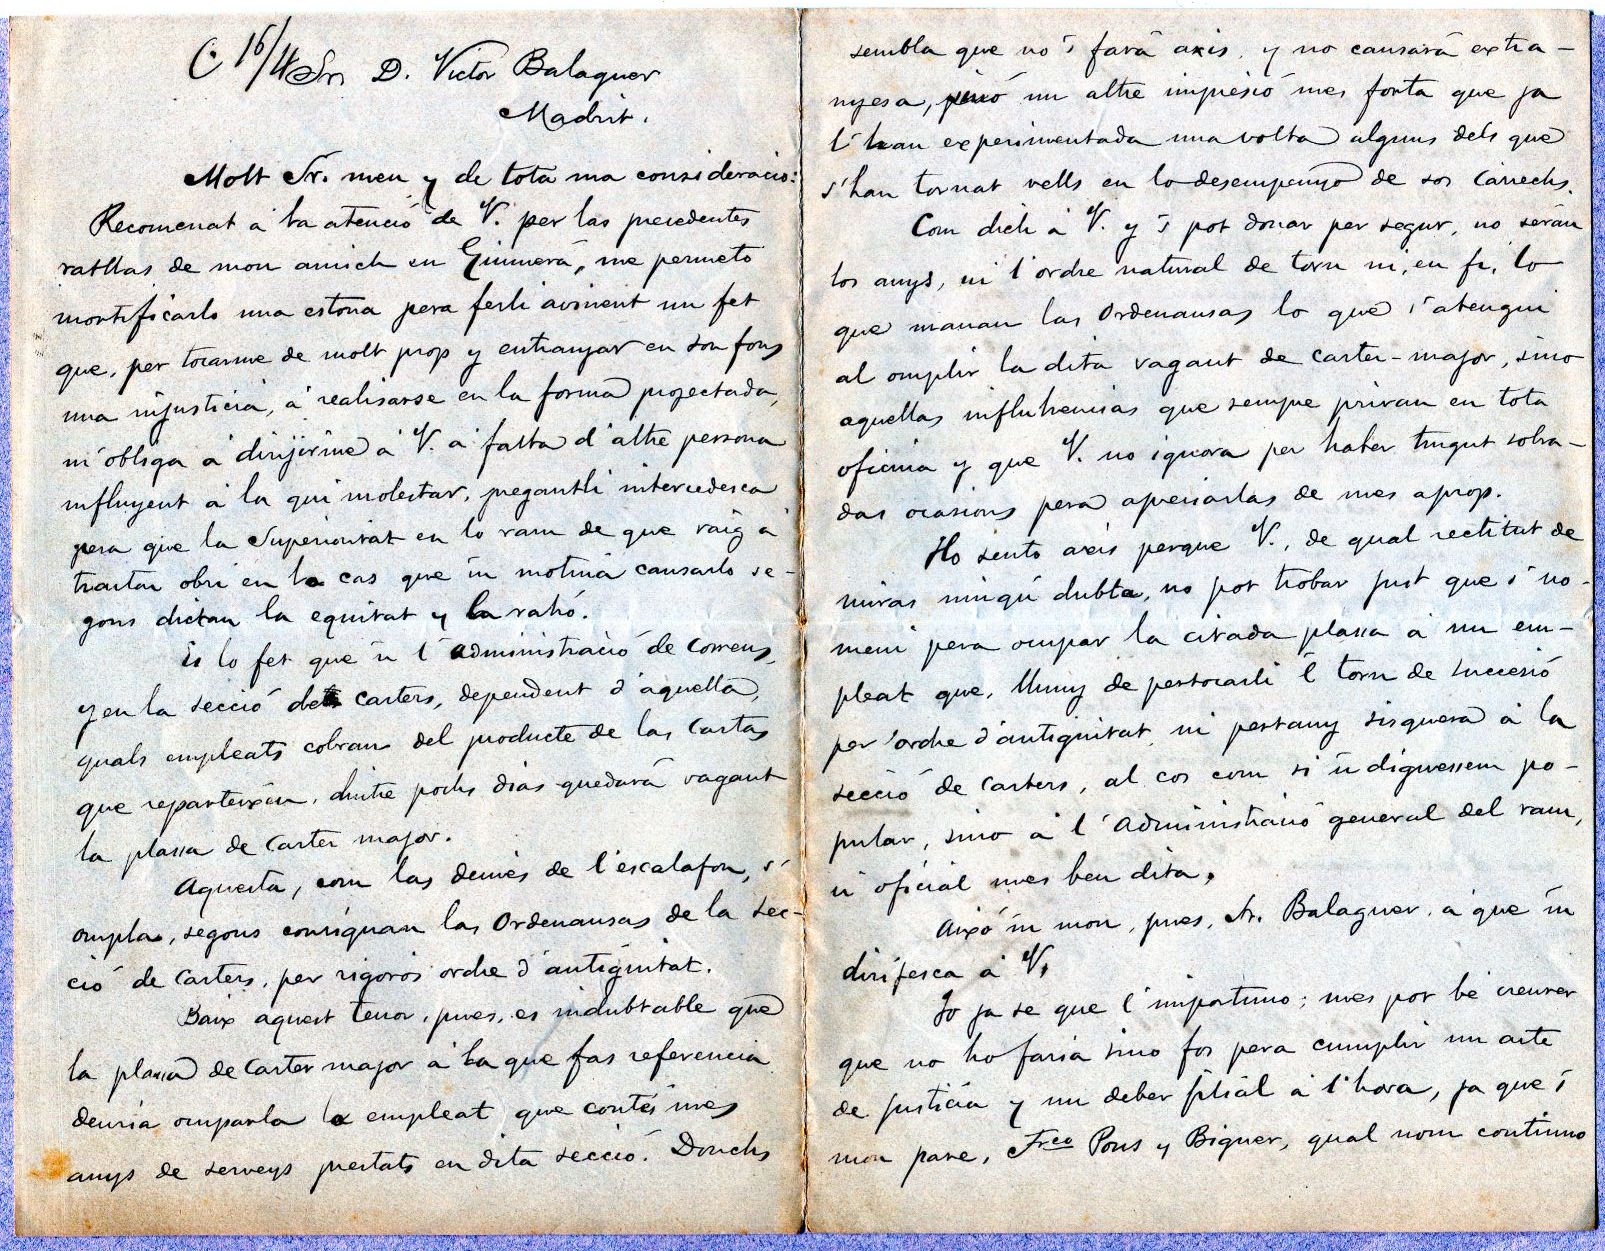 C 16/4 Sr. D. Victor Balaguer
Madrit.
Molt Sr. meu y de tota ma consideració:
Recomenat á la atenció de V. per las precedentes
ratllas de mon amich en Guimerá, me permeto
mortificarlo una estona pera ferli avinent un fet
que, per tocarme de molt prop y entranyar en son fons
una injusticia, á realisarse en la forma projectada,
m'obliga á dirijirme á V. á falta d'altre persona
influyent á la qui molestar, pregantli intercedesca
pera que la Superioritat en lo ram de que vaig á
tractar obri en lo cas que 'm motiva causarlo se-
gons dictan la equitat y la rahó.
Es lo fet que á l'Administració de Correus,
y en la secció dels carters, dependent d'aquella,
quals empleats cobran del producte de las cartas
que reparteixen, dintre pochs dias quedará vagant
la plassa de Carter major.
Aquesta, com las demés de l'escalafon, s'
ompla, segons consignan las Ordenansas de la Sec-
ció de Carters, per rigorós ordre d'antiguitat.
Baix aquest tenor, pues, es indubtable que
la plassa de Carter major á la que fas referencia
deuria ocuparla lo empleat que contés mes
anys de serveys prestats en dita secció. Donchs
sembla que no 's fará axis, y no causará extra-
nyesa, sinó un altre impresió mes forta que ja
l'han experimentada una volta alguns dels que
s'han tornat vells en lo desempenyo de sos cárrechs.
Com dich á V. y 's pot donar per segur, no serán
los anys, ni l'ordre natural de torn ni, en fi, lo
que manan las Ordenansas lo que s'atengui
al omplir la dita vagant de carter-major, sino
aquellas influhencias que sempre privan en tota
oficina y que V. no ignora per haber tingut sobra-
das ocasions pera apreciarlas de mes aprop.
Ho sento axis perque V., de qual rectitut de
miras ningú dubta, no pot trobar just que s'no-
meni pera ocupar la citada plassa á un em-
pleat que, lluny de pertocarli l'torn de successió
per 'ordre d'antiguitat, ni pertany sisquera á la
secció de Carters, al cos com si 'n diguessem po-
pular, sino á l'Administració general del ram,
ú oficial mes ben dita.
Aixó 'm mou, pues, Sr. Balaguer, á que 'm
dirijesca á V.
Jo ja se que l'importuno; mes pot be creurer
que no ho faria sino fos pera cumplir un acte
de justicia y un deber filial á l'hora, ja que 's
mon pare, Frco Pons y Biguer, qual nom continuo